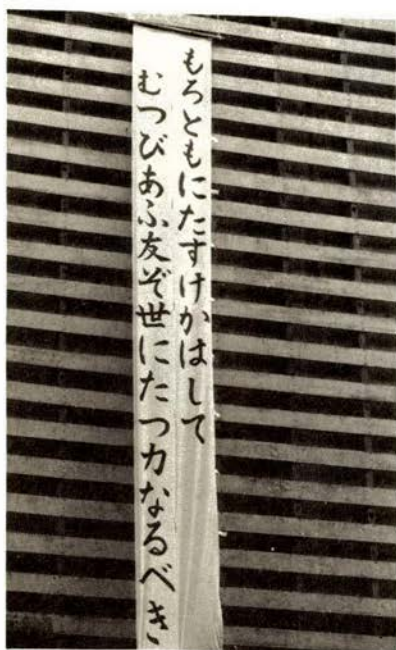 もろともにたすけかはして
むつびあふ友ぞ世にたつ力なるべき